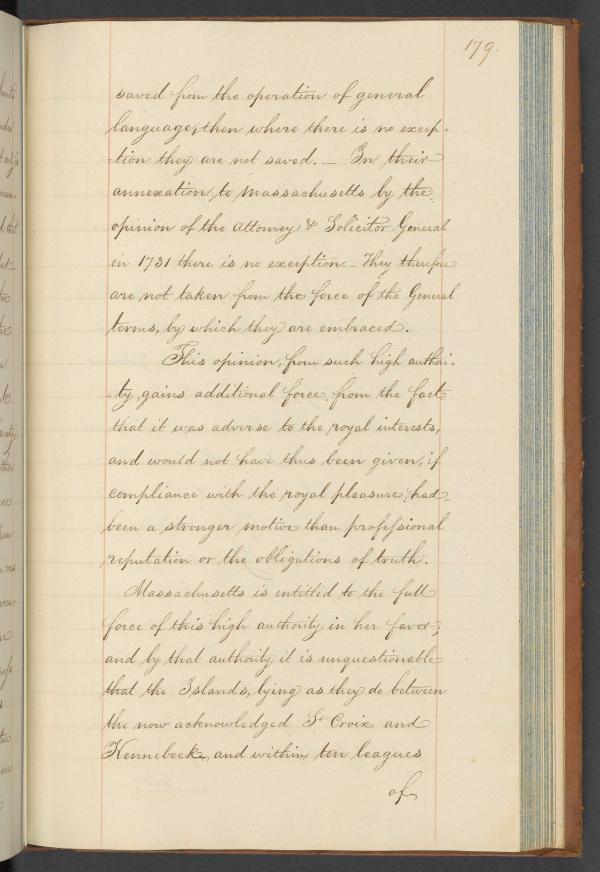 179.
saved from the operation of general
language, then where there is no excep-
-tion they are not saved. — In their
annexation, to Massachusetts by the
opinion of the Attorney & Solicitor General
in 1731 there is no exception – They therefore
are not taken from the force of the General
terms, by which they are embraced.
This opinion, from such high authori-
-ty, gains additional force, from the fact
that it was adverse to the royal interests,
and would not have thus been given, if
compliance with the royal pleasure, had
been a stronger motive than professional
reputation or the obligations of truth.
Massachusetts is entitled to the full
force of this high authority in her favor;
and by that authority it is unquestionable
that the Islands, lying as they do between
the now acknowledged St Croix and
Kennebeck, and within ten leagues
of